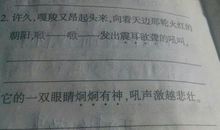 2. 许久,嘎羧又昂起头来,向着天边那轮火红的
朝阳,呕——呕——发出震耳欲聋的吼叫。
它的一双眼睛炯炯有神,吼声激越悲壮。